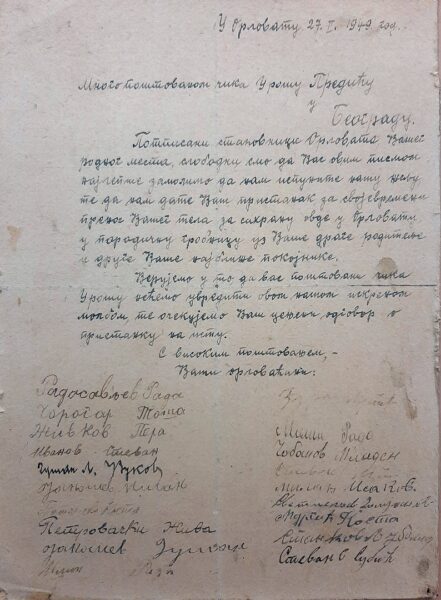 У Орловату 27. I. 1949 год.
Многопоштованом чика Урошу Предићу
у
Београду.
Потписани становници Орловата Вашег
родног места, слободни смо да Вас овим писмом
најлепше замолимо да нам испуните нашу жељу
те да нам дате Ваш пристанак за својевремени
пренос Вашег тела за сахрану овде у Орловату
у породичну гробницу уз Ваше драге родитеље
и друге Ваше најближе покојнике.
Верујемо у то да вас поштовани чика
Урошу нећемо увредити овом нашом искреном
молбом, те очекујемо Ваш цењени одговор о
пристанку на исту.
С високим поштовањем,-
Ваши орловаћани:
Радосављев Рада
Чорогар Тоша
Живков Пера
Иванов Стеван
Душан Л. Вуков
Милан
Петровачки Жива
Душан
Рада
Чобанов Младен
Милан
Коста
Станков
Стеван